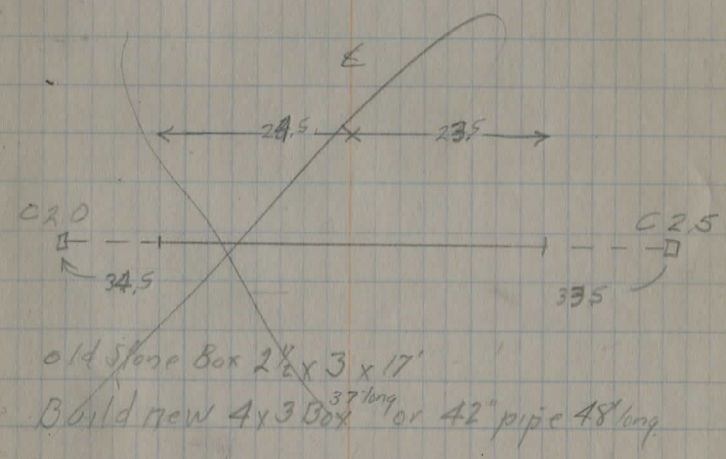 ℄
24.5 23.5
C 2.0 C 2.5
34.5 33.5
old Stone Box 2½ x 3 x 17'
Build new 4 x 3 Box 37' long or 42" pipe 48' long